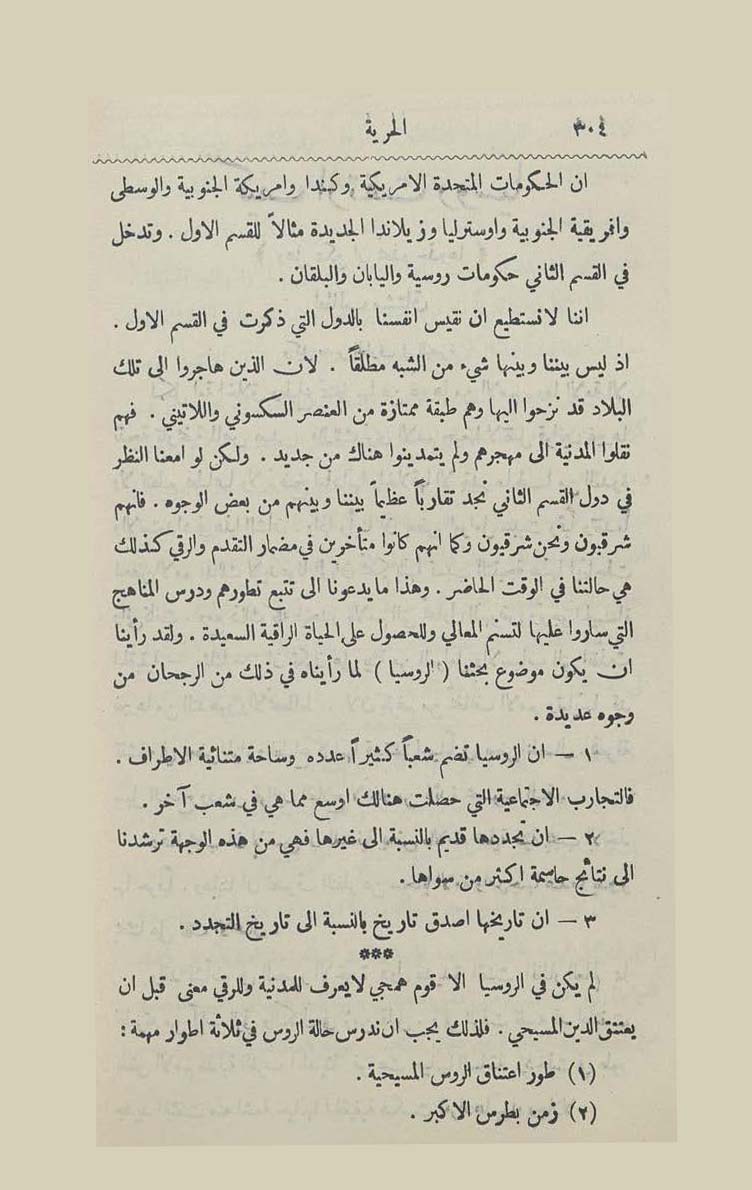 ٣٠٤ الحرية
ان الحكومات المتحدة الامريكية وكبندا وامريكة الجنوبية والوسطى
وافريقية الجنوبية واوسترليا وزيلاندا الجديدة مثالاً للقسم الاول . وتدخل
في القسم الثاني حكومات روسية واليابان والبلقان .
اننا لا نستطيع ان نقيس انفسنا بالدول التي ذكرت في القسم الاول .
اذ ليس بيننا وبينها شيء من الشبه مطلقاً . لان الذين هاجروا الى تلك
البلاد قد نزحوا اليها وهم طبقة ممتازة من العنصر السكسوني واللاتيني . فهم
نقلوا المدنية الى مهجرهم ولم يتمدينوا هناك من جديد . ولكن لو امعنا النظر
في دول القسم الثاني نجد تقارباً عظيماً بيننا وبينهم من بعض الوجوه . فانهم
شرقيون ونحن شرقيون وكما انهم كانوا متأخرين في مضمار التقدم والرقي كذلك
هي حالتنا في الوقت الحاضر . وهذا ما يدعونا الى تتبع تطورهم ودرس المناهج
التي ساروا عليها لتسنم المعالي وللحصول على الحياة الراقية السعيدة . ولقد رأينا
ان يكون موضوع بحثنا ( الروسيا ) لما رأيناه في ذلك من الرجحان من
وجوه عديدة .
١ — ان الروسيا تضم شعباً كثيراً عدده وساحة متنائية الاطراف .
فالتجارب الاجتماعية التي حصلت هنالك اوسع مما هي في شعب آخر .
٢ — ان تجددها قديم بالنسبة الى غيرها فهي من هذه الوجهة ترشدنا
الى نتائج حاسمة اكثر من سواها .
٣ — ان تاريخها اصدق تاريخ بالنسبة الى تاريخ التجدد .
***
لم يكن في الروسيا الا قوم همجي لا يعرف للمدنية وللرقي معنى قبل ان
يعتنق الدين المسيحي . فلذلك يجب ان ندرس حالة الروس في ثلاثة اطوار مهمة :
(١) طور اعتناق الروس المسيحية .
(٢) زمن بطرس الاكبر .